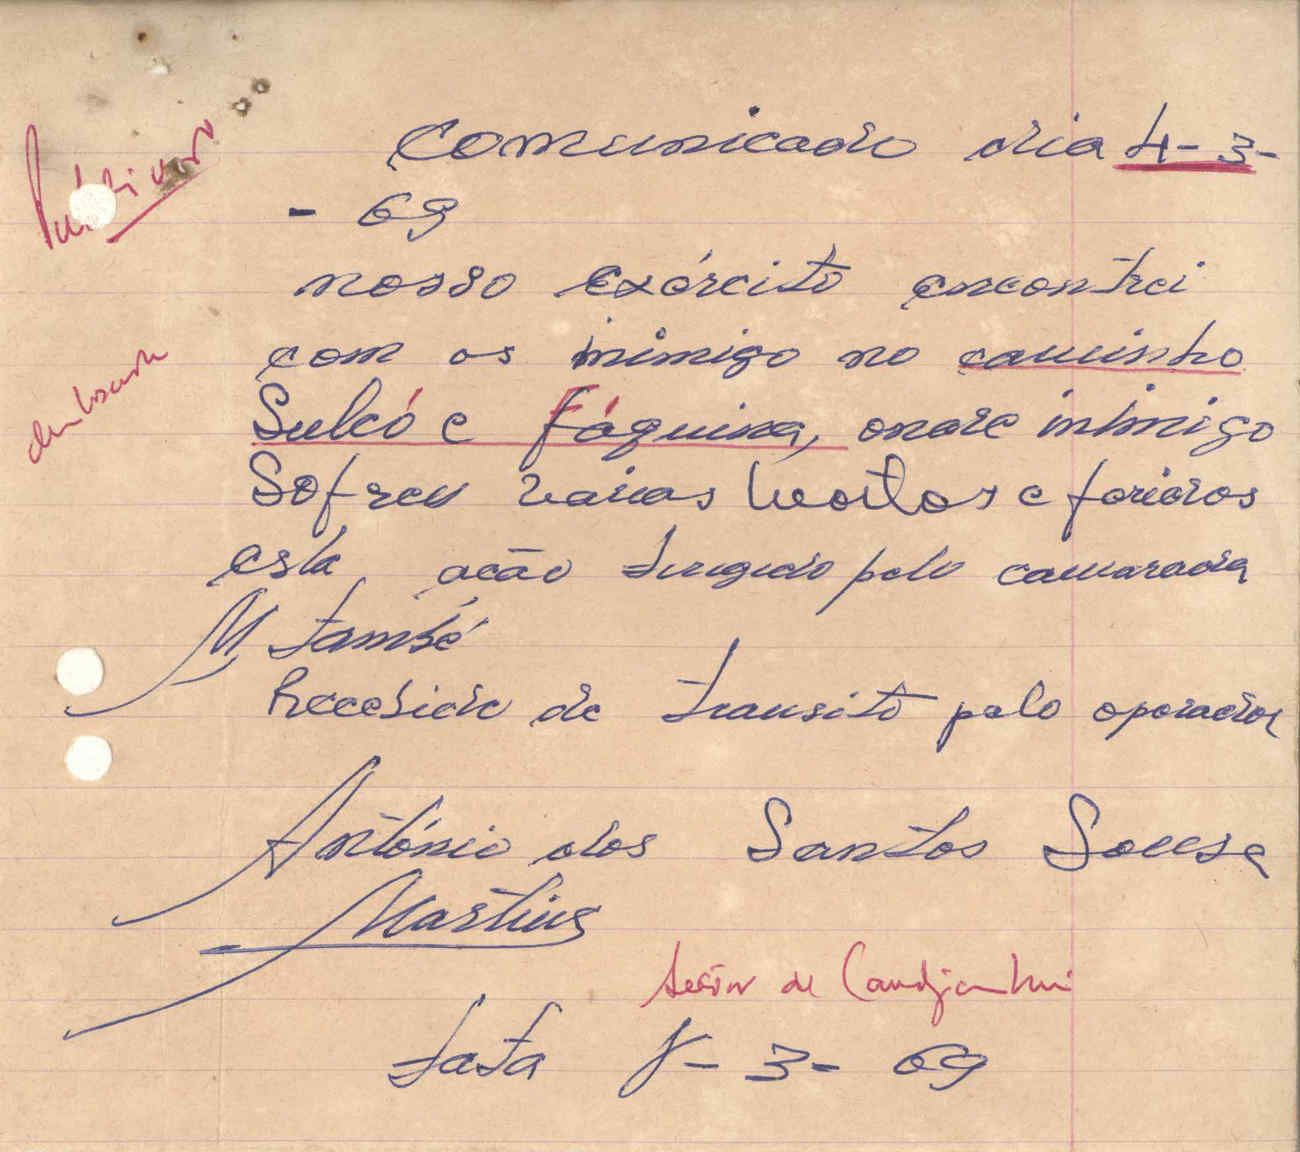 Comunicado dia 4-3-
- 69
nosso exército encontrei
com os inimigo no caminho
Sulcó e Fáquina, onde inimigo
Sofreu varias mortos e foridos
esta acão dirigido pelo camarada
M també
Recebido de transito pelo operador
António dos Santos Sousa
Martins
Sector de
data 8-3-69